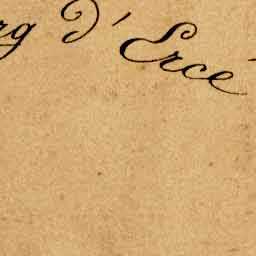 rg d'Ercé